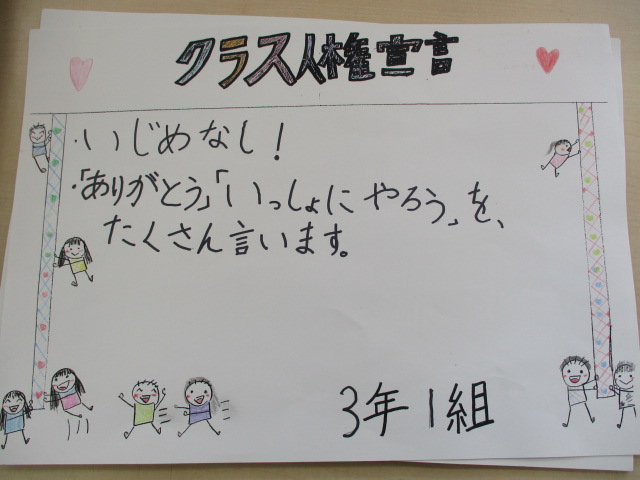 クラス人権宣言
・いじめなし！
・「ありがとう」「いっしょにやろう」を、
たくさん言います。
3年1組